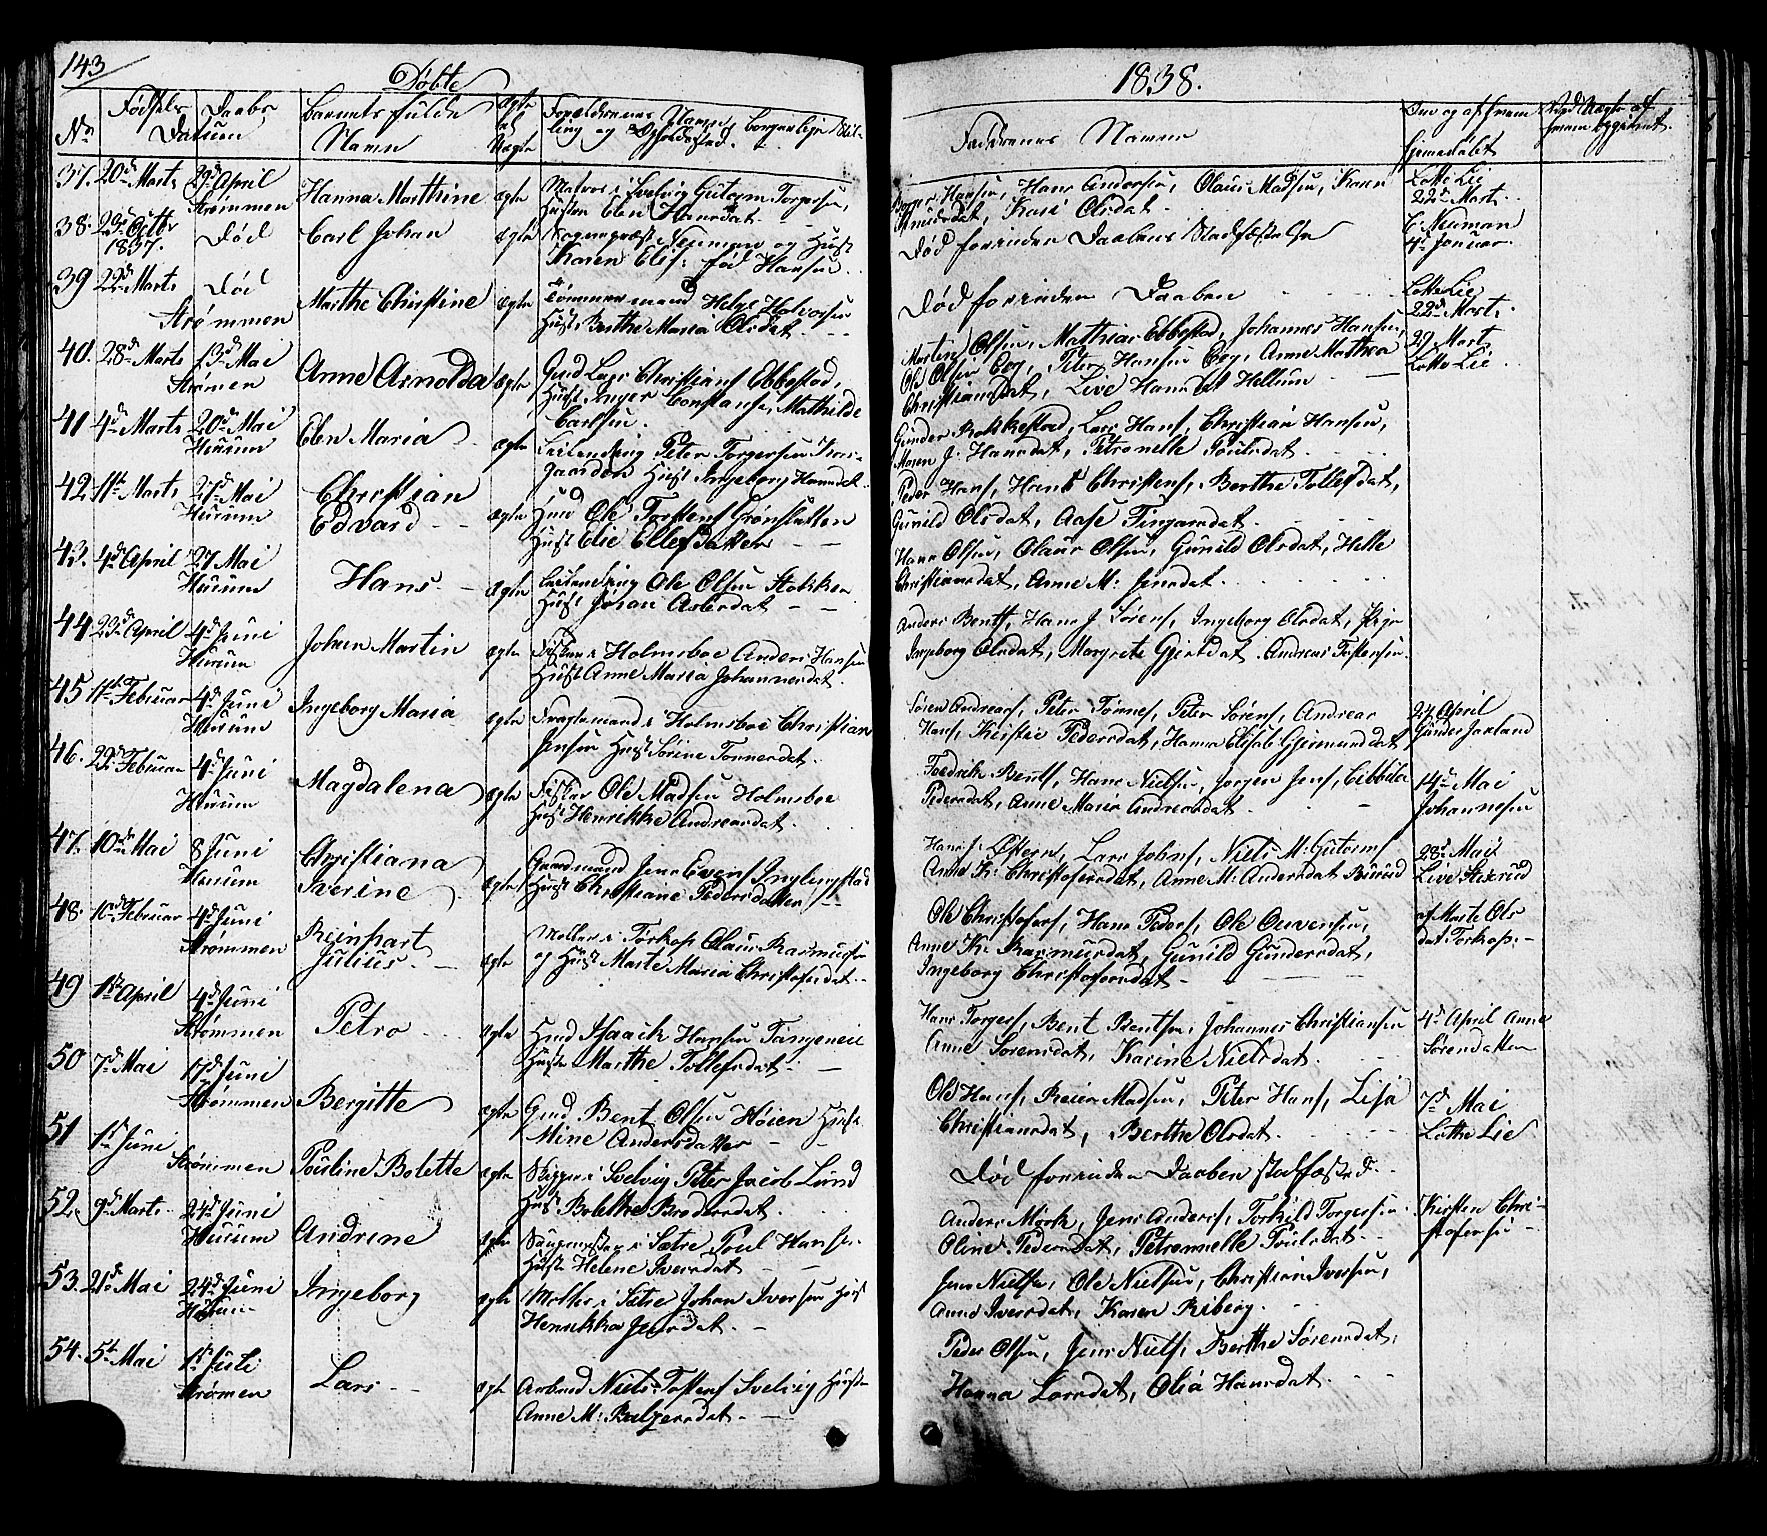 143
Døbte
1838.
No
Fødsels Daabs
Datum
Barnets fulde
Navn
Ægte
el
Uægte
Forældrenes Navn, borgerlige Stil-
ling og Opholdssted.
Faddernes Navne
Naar og af hvem
hjemmedøbt
37. 20de Marts 29de April
Strømmen
Hanna Marthine ægte
Matros i Svelvig Gutorm Torgersen,
Hustru Elen Hansdat.
Hansen, Hans Andersen, Olaus Madsen, Karen
Knudsdat, Kari Olsdat.
Lotte Lie
22de Mart.
38. 23de Octbr
1837.
Død
Carl Johan ægte
Sogneprest Neuman og Hust
Karen Elis: fød Hansen
Død forinden Daabens Stadfæstelse
C Neuman
4de Januar.
39 22de Marts Død
Strømmen
Marthe Christine ægte
Tømmermand Helge Halvorsen
Hust Berthe Maria Olsdat.
Død forinden Daaben
Lotte Lie
22de Mart.
40. 28de Marts 13de Mai
Strømen
Anne Arnolda ægte
Gmd Lars Christians Ebbestad,
Hust Inger Constanse Mathilde
Carlsen.
Martin Olsen, Mathias Ebbestad, Johannes Hansen,
Ole Olsen Eeg, Peter Hansen Eeg, Anne Mathea
Christiansdat, Live Hansdat Hellum
29 Mart
Lotte Lie
41 4de Marts 20de Mai
Hurum
Elen Maria ægte
Leilending Peter Torgersen
gaarden Hust Ingeborg Hansdat
Gunder Rotskestad, Lars Hans, Christian Hansen,
Maren J. Hansdat, Petronelle Poulsdat.
42. 11te Marts 27de Mai
Hurum
Christian
Edvard ægte
Hmd Ole Torstens Grønsletten
Hust Elie Ellefsdatter
Peder Hans, Hans Christens, Berthe Tollefsdat,
Gunild Olsdat, Aase Tingansdat.
43. 4de April 27 Mai
Hurum
Hans. ægte
Leilending Ole Olsen Stokker
Hust Jøran Aslesdat
Hans Olsen, Olaus Olsen, Gunild Olsdat, Helle
Christiansdat, Anne M: Jensdat.
44 23de April 4de Juni
Hurum
Johan Martin ægte
Fisker i Holmsboe Anders Hansen
Hust Anne Maria Johannesdat.
Anders Bents, Hans J Sørens, Ingeborg Olsdat, Pige
Ingeborg Olsdat, Margrete Gjertsdat. Andreas Torstensen.
45 11te Februar 4de Juni
Hurum
Ingeborg Maria ægte
Fragtemand i Holmsboe Christian
Jensen Hust Sørine Tønnesdat.
Søren Andreas, Peter Tønnes, Peter Sørens, Andreas
Hans, Kirstie Pedersdat, Hanna Elisab Gjermundsdat
24 April
Gunder Jaxland
46. 23de Februar 4de Juni
Hurum
Magdalena ægte
Fisker Ole Madsen Holmsboe
Hust Henrikke Andreasdat.
Fredrik Bents, Hans Nielsen, Jørgen Jens, Cibbila
Pedersdat, Anne Maria Andreasdat.
14de Mai
Johannesen
47. 10de Mai 8 Juni
Hurum
Christiana
Severine ægte
Gaardmand Jens Evens Inglingstad
Hust Christiane Pedersdatter
Hans J: Østern, Lars Johns, Niels M: Gutorms
Anne K: Christofersdat, Anne M: Andersdat Buerud
28de Mai
Live Stikerud
48. 10de Februar 4de Juni
Strømmen
Reinhart
Julius. ægte
Møller i Torkop Olaus Rasmusen
og Hust Marte Maria Christofersdat.
Ole Christofers, Hans Peders, Ole Owensen,
Anne K: Rasmusdat, Gunild Gundersdat,
Ingeborg Christofersdat
af Marte Ols
dat Torkop.
49 1ste April 4de Juni
Strømmen
Petra ægte
Hmd Isaack Hansen Tangeneie
Hustr Marthe Tollefsdat
Hans Torgers, Bent Bentsen, Johannes Christiansen
Anne Sørensdat, Karine Nielsdat.
4de April Anne
Sørensdatter
50 7de Mai 17de Juni
Strømmen
Bergitte ægte
Gmd Bent Olsen Høien Hust
Mine Andersdatter
Ole Hans, Reier Madsen, Peter Hans, Lisa
Christiansdat, Berthe Olsdat.
7de Mai
Lotte Lie
51 1ste Juni
Strømmen
Pouline Bolette ægte
Skipper i Svelvig Peter Jacob Lund
Hust Bolette Brodersdat.
Død forinden Daaben stadfæsted.
52. 9de Marts 24de Juni
Hurum
Andrine ægte
Saugmester i Sætre Poul Hansen
Hust Helene Iversdat
Anders Mørk, Jens Anders, Torkild Torgersen
Oline Pedersdat, Petronnelle Poulsdat
Kirsten Chri-
stofersen
53. 21de Mai 24de Juni
Hurum
Ingeborg ægte
Møller i Sætre Johan Iversen Hust
Henrikka Jensdat.
Jens Nielsen, Ole Nielsen, Christian Iversen,
Anne Iversdat, Karen Riberg.
54. 5te Mai 1ste Juli
Strømen
Lars ægte
Arbmd Niels Tostens Svelvig Hustr
Anne M: Balzersdat.
Peder Olsen, Jens Niels, Berthe Sørensdat,
Hanna Larsdat, Olia Hansdat.